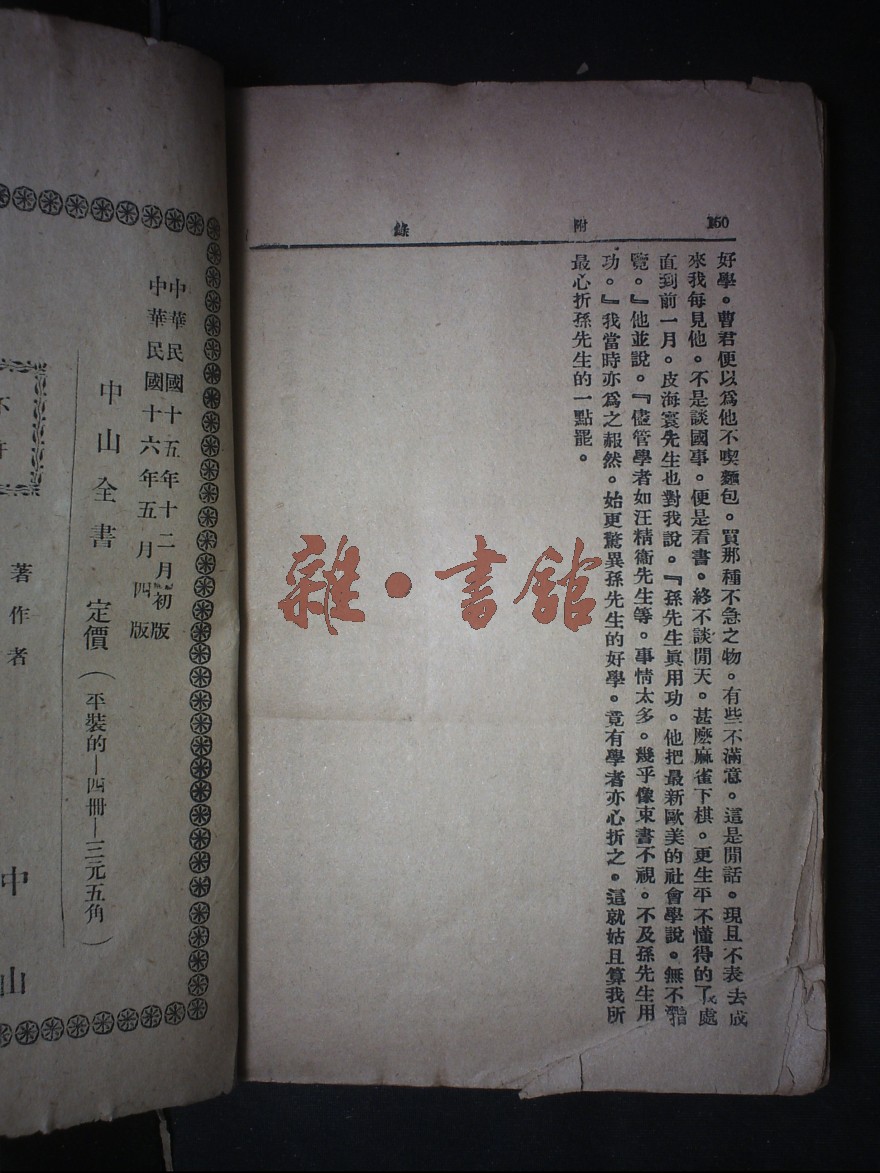 150 附錄
好學。曹君便以爲他不喫麵包。買那種不急之物。有些不滿意。這是閒話。現且不表去成
來我每見他。不是談國事。便是看書。終不談閒天。甚麽麻雀下棋。更生平不懂得的了。處
直到前一月。皮海寰先生也對我說。『孫先生眞用功。他把最新歐美的社會學說。無不
覽。』他並說。『儘管學者如汪精衞先生等。事情太多。幾乎像束書不視。不及孫先生用
功。』我當時亦爲之赧然。始更驚異孫先生的好學。竟有學者亦心折之。這就姑且算我所
最心折孫先生的一點罷。
中華民國十五年十二月初版
中華民國十六年五月四版
中山全書 定價（平裝的—四冊—三元五角）
著作者 中山
不許
雜·書館